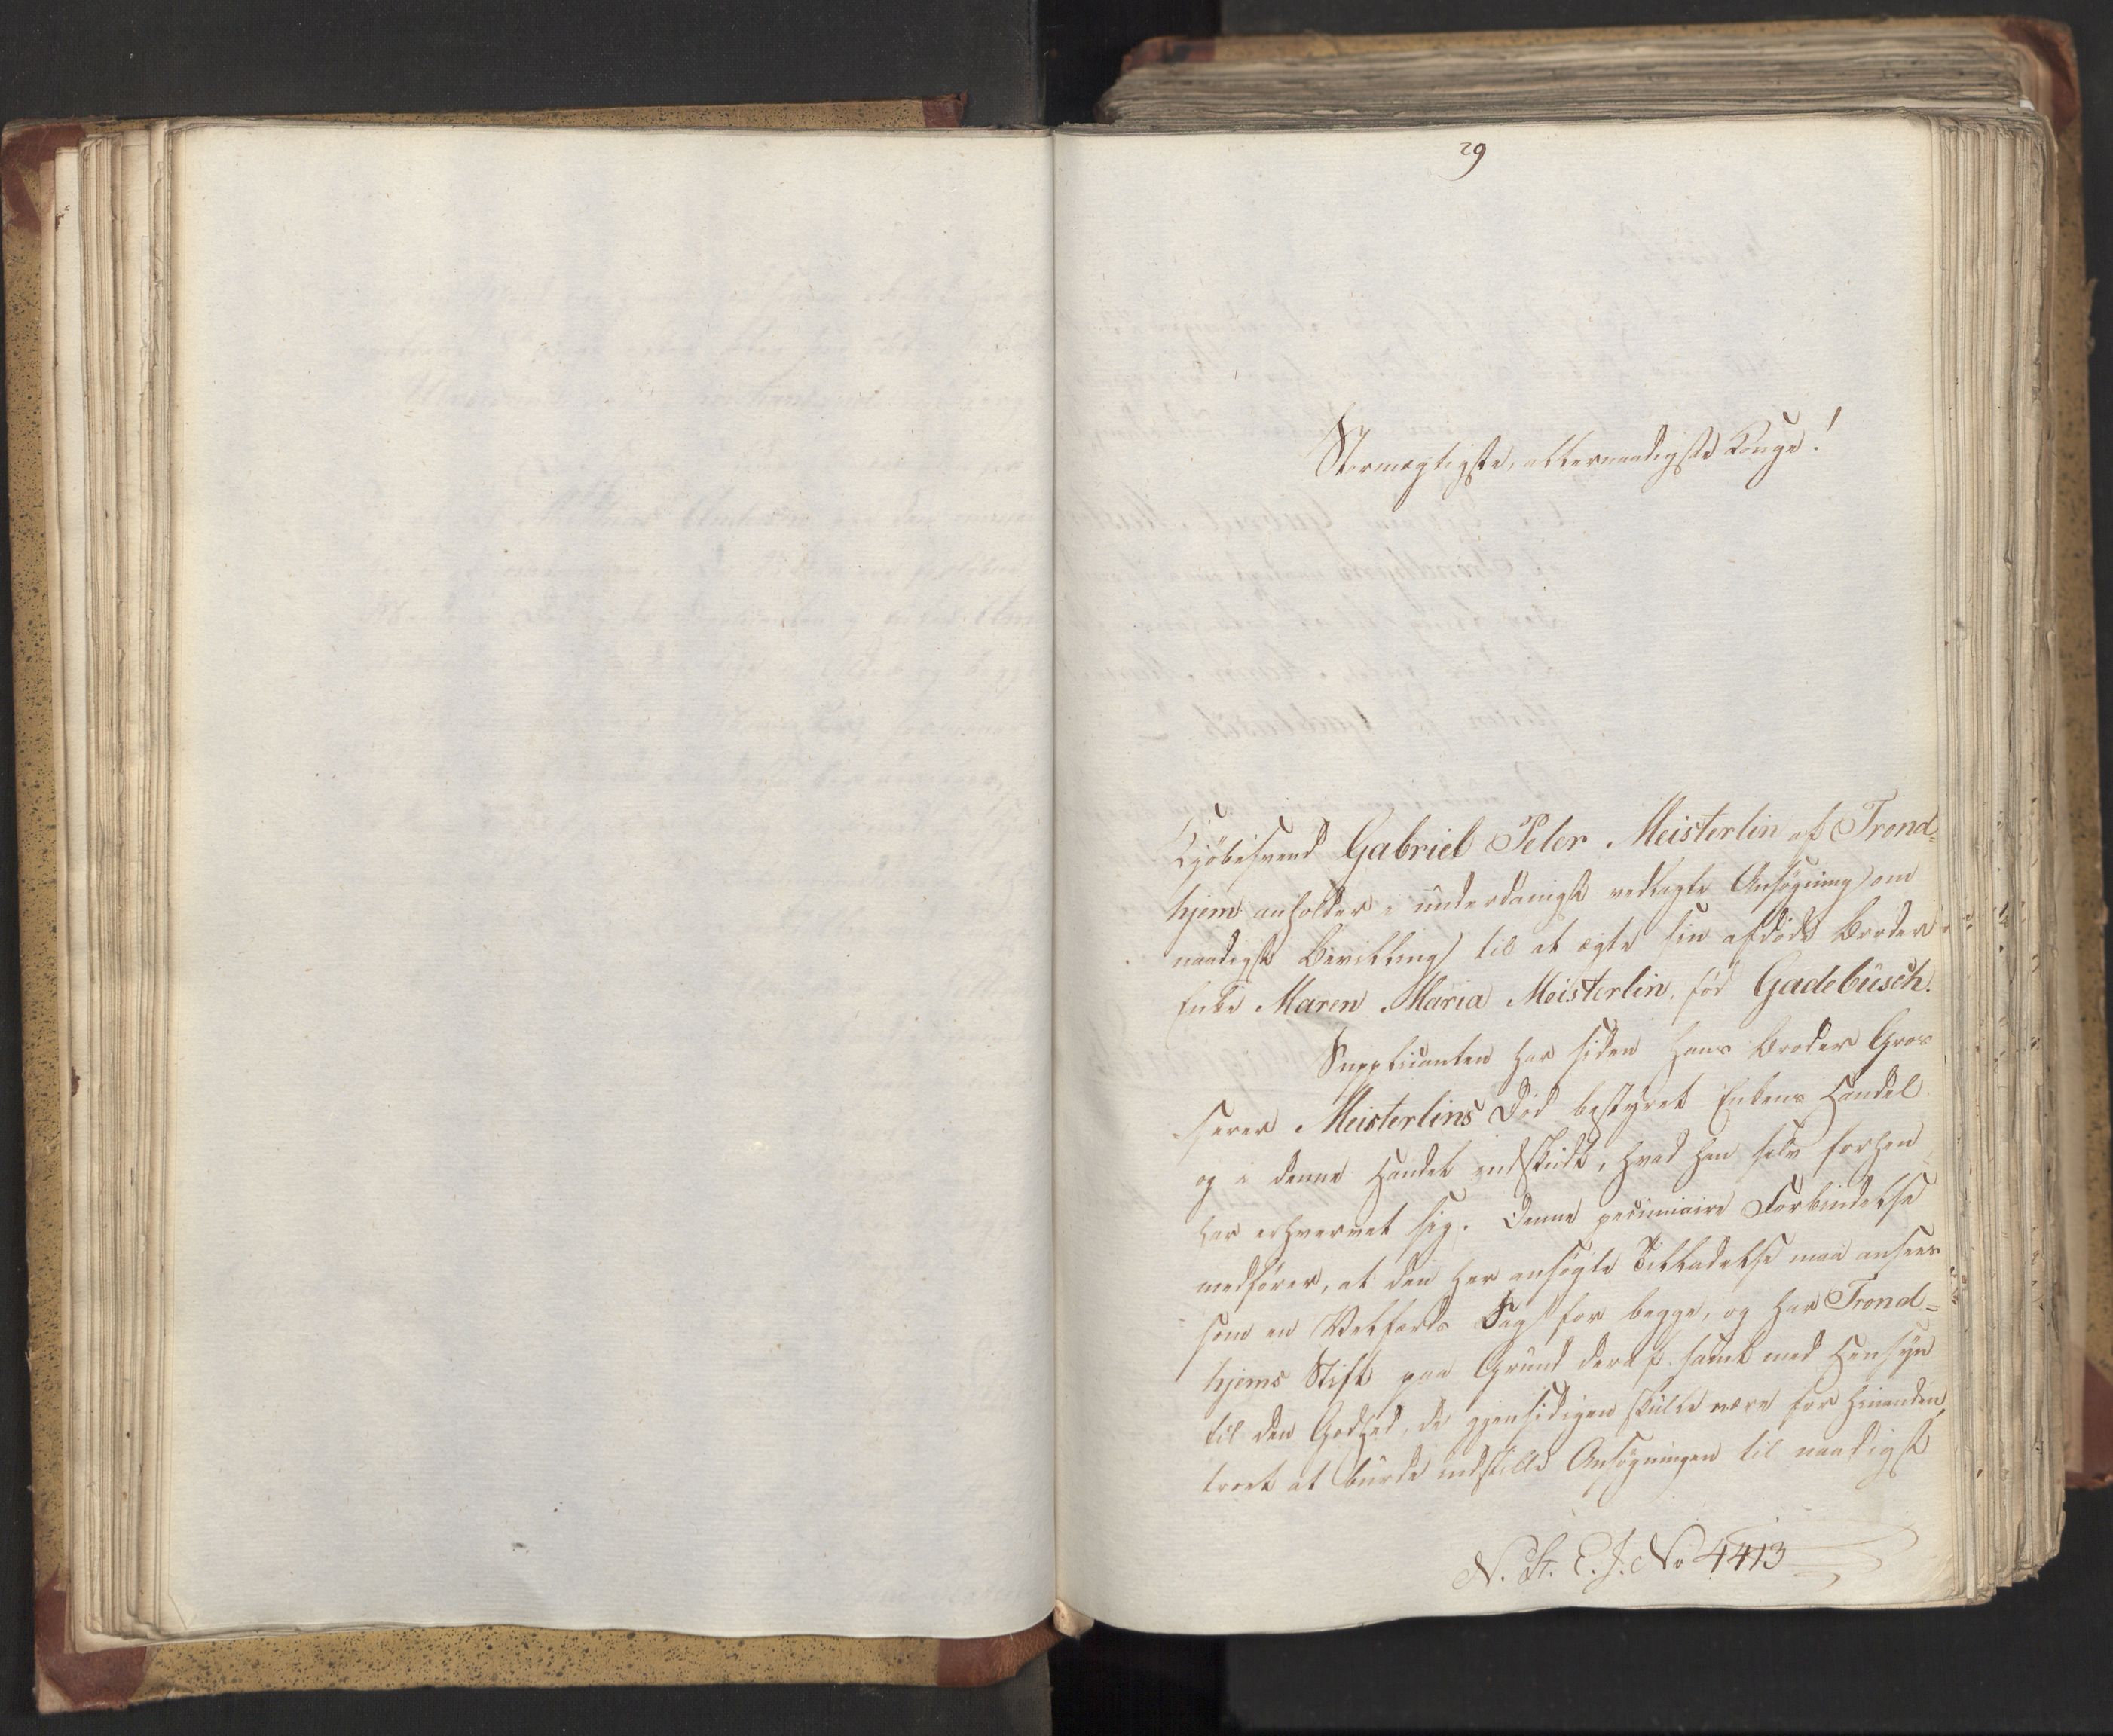 29
Stormægtigste, allernaadigste Konge!
Kjöbesvend Gabriel Peter Meisterlin af Trond=
hjem anholder i ûnderdanigst vedlagte Ansøgning om
naadigst Bevilling til at ægte sin afdöde Broders
Enke Maren Maria Meisterlin, fød Gadebûsch.
Supplicanten har siden hans Broder Gros
serer Meisterlins Död bestyret Enkens Handel
og i denne Handel indskûdt, hvad han selv forhen
har erhvervet sig. Denne pecûniaire Forbindelse
medfører, at den her ansøgte Tilladelse maa ansees
som en Velfærds Sag for begge, og har Trond=
hjems Stift paa Grûnd deraf samt med Hensÿn
til den Godhed, de gjensidigen skûlle nære for hinanden,
troet at bûrde indstille Ansøgningen til naadigst
N. St. E. J. No 4413